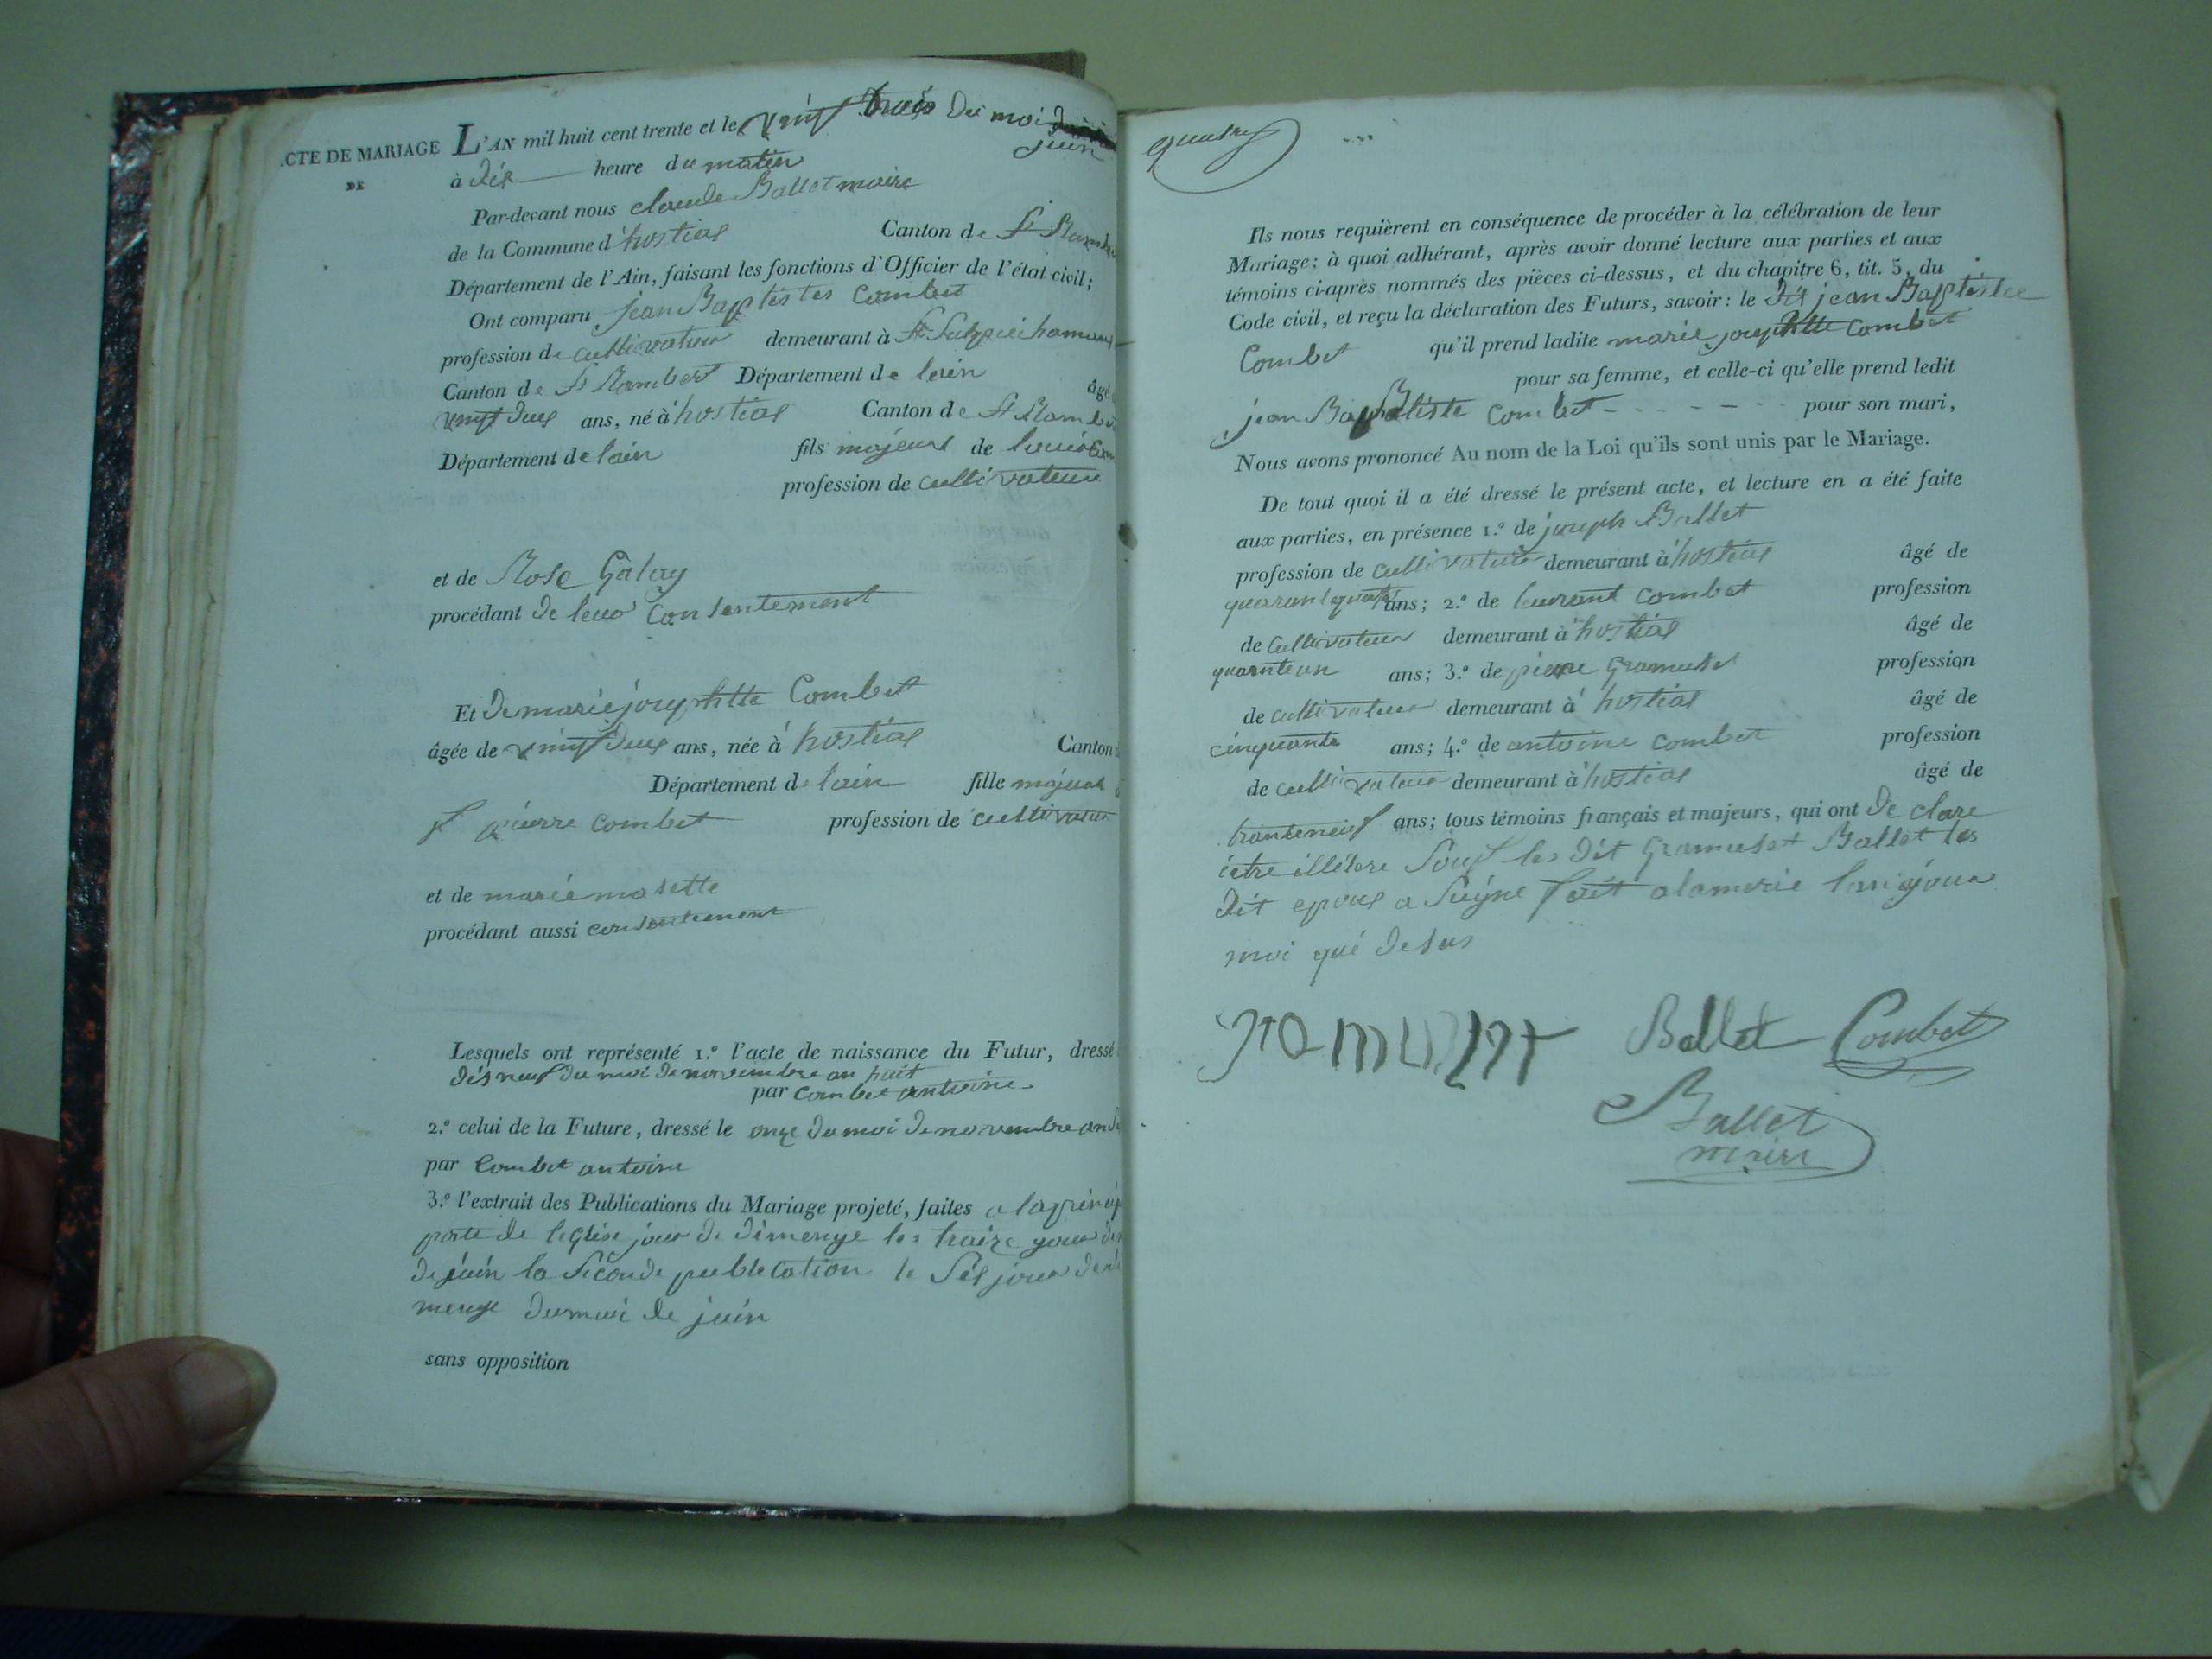 .CTE DE MARIAGE
DE
L'AN mil huit cent trente et le vint trois du moi
juin
à dix heure du matin
Par-devant nous claude Ballet maire
de la Commune d'hostias Canton de St Ramber
Département de l'Ain, faisant les fonctions d'Officier de l'état civil;
Ont comparu jean Baptistes Combet
profession de cultivateur demeurant à St
Canton de St Rambert Département de lain âgé
vint deux ans, né à hostias Canton de St Rambe
Département de lain fils majeur de louis Com
profession de cultivateur
et de Rose Galay
procédant de leur Consentement
Et de marie josephtte Combet
âgée de vint deux ans, née à hostias Canton
Département de lain fille majeur
pierre combet profession de cultivateur
et de marie masette
procédant aussi consentement
Lesquels ont représenté 1.º l'acte de naissance du Futur, dressé
dis neuf du moi de novembre an huit
par combet antoine
2.º celui de la Future, dressé le onze du moi de novembre an
par Combet antoine
3.º l'extrait des Publications du Mariage projeté, faites a la princip
porte de leglise jour de dimenge les traize jour
de juin la seconde publication le jour de di
menge du moi de juin
sans opposition
quatre
Ils nous requièrent en conséquence de procéder à la célébration de leur
Mariage: à quoi adhérant, après avoir donné lecture aux parties et aux
témoins ci-après nommés des pièces ci-dessus, et du chapitre 6, tit. 5, du
Code civil, et reçu la déclaration des Futurs, savoir: le dit jean Baptistee
Combet qu'il prend ladite marie josephtte Combet
pour sa femme, et celle-ci qu'elle prend ledit
jean Baptiste Combet pour son mari,
Nous avons prononcé Au nom de la Loi qu'ils sont unis par le Mariage.
De tout quoi il a été dressé le présent acte, et lecture en a été faite
aux parties, en présence 1.º de joseph Ballet
profession de cultivateur demeurant à hostias âgé de
ans; 2.º de laurant combet profession
de cultivateur demeurant à hostias âgé de
quaranteun ans; 3.º de pierre Gramuset profession
de cultivateur demeurant à hostias âgé de
cinquante ans; 4.º de antoine combet profession
de cultivateur demeurant à hostias âgé de
tranteneuf ans; tous témoins français et majeurs, qui ont de clare
etre illétere les dit Gramuset Ballet les
dit epoux a fait a lamerie jour
moi qué desus
gramuzet Ballet Combet
Ballet
maire